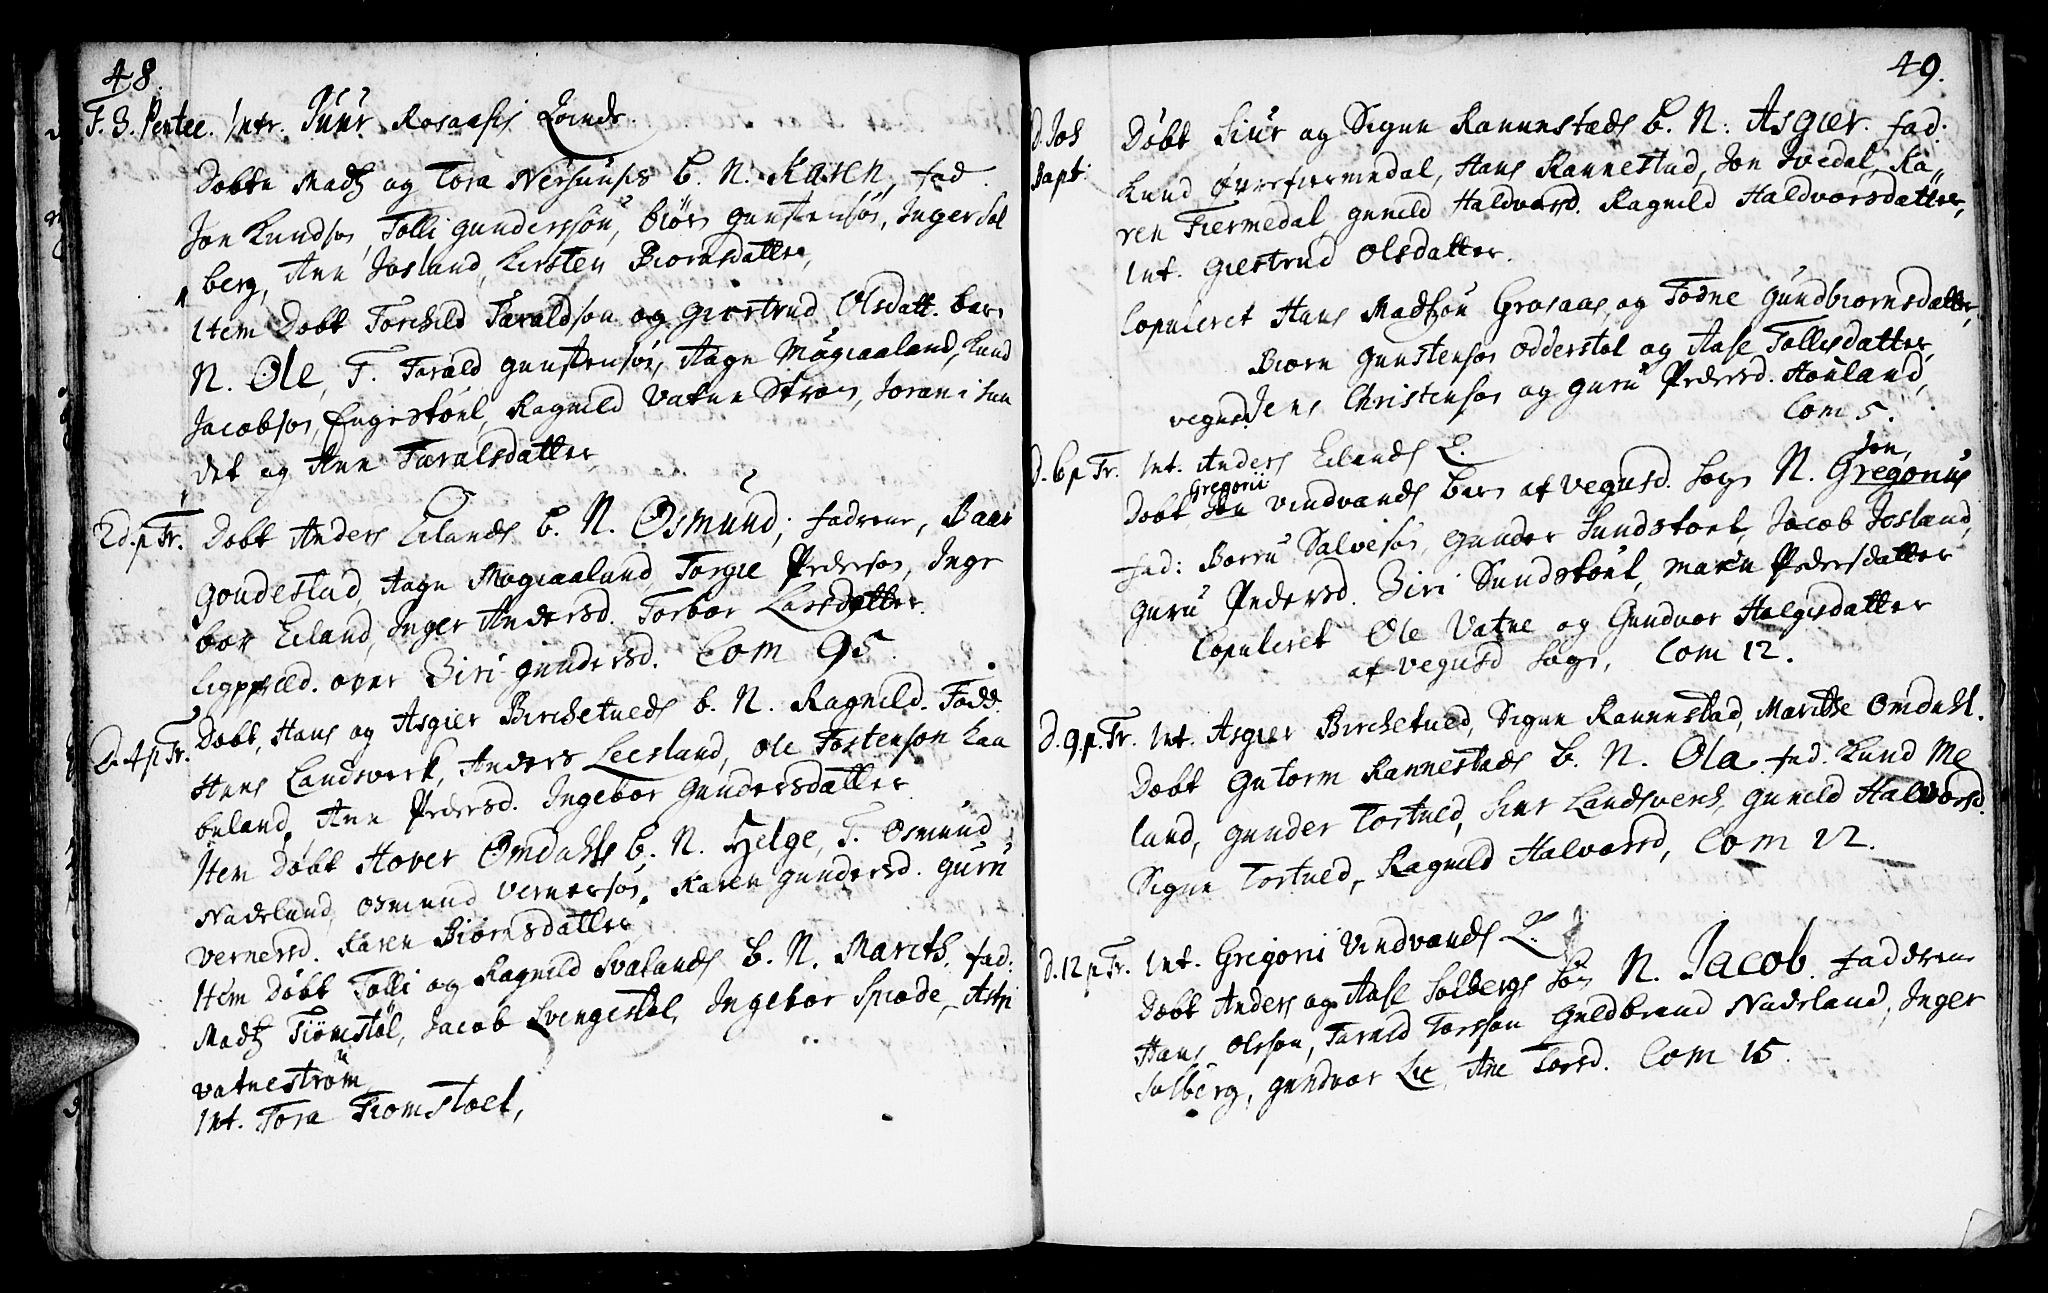 48.
F. 3. Pentec. Intr. Siur Rosaasis Qvinde.
Døbte Madtz og Tora Nersunds b. N. Karen, fad.
Jon Knudson, Tolli Gundersson, Biørn Gunstensøn, Inger Sol
berg, Ane Josland, Kirsten Biornsdatter,
Item Døbt Torchild Taraldson og Giertrud Olsdatt. barn
N. Ole, F. Tarald Gunstensøn, Aagn Mogiaaland, Knud
Jacobsøn, Engestøel, Ragnild Vatne Strøm, Joran i Sun
det og Ane Taralsdatter,
2 d. p Tr. Døbt Anders Eilands b. N. Osmund; fadrene, Baar
Goudestad, Aagn Mogiaaland Torgie Pedersøn, Inge
bor Eiland, Inger Andersd. Torbor Larsdatter.
Ligpræd. over Biri Gundersd. Com 95.
D. 4 p Tr. Døbt, Hans og Asgier Birchetveds b. N. Ragnild. Fadd.
Hans Landsverk, Anders Leesland, Ole Tostenson Kaa
beland, Ane Pedersd. Ingebor Gundersdatter
Item Døbt Hover Omdahls b. N. Helge, F. Osmund
Nadeland, Osmund Vernersøn, Karen Gundersd. Guru
Vernersd. Karen Biørnsdatter
Item Døbt Tolli og Ragnild Svalands b. N. Marith, fad:
Madtz Tiømstøl, Jacob Svengestøl, Ingebor Spiøde, Astri
Vatnestrøm
Int. Tora Tiomstoel,
49.
D. Joh Døbt Siur og Signe Rannestads b. N: Asgier. fad:
Bapt: Knud Øvrefiermedal, Hans Rannestad, Jon Svedal, Ka
ren Fiermedal, Gunild Haldvorsd. Ragnild Haldvorsdatter,
Int. Giertrud Olsdatter.
Copuleret Hans Madtzøn Grosaas, og Todne Gundbiornsdatter,
Biørn Gunstensøn Odderstøl og Aase Tollisdatter,
vegusd Jens Christensøn og Guru Pedersd. Høuland,
Com 5.
D. 6 p Tr. Int. Anders Eilands Q.
Døbt Gregorii Vindvands barn af Vegusd. Sogn N. Gregorius Jon,
fad: Borru Salvesøn, Gunder Sundstoel, Jacob Josland,
Guru Pedersd. Biri Sundstoel, Maren Pedersdatter
Copuleret Ole Vatne og Gundvor Helgesdatter
af Vegusd Sogn, Com 12.
D. 9 p. Tr. Int. Asgier Birchetved, Signe Rannestad, Marithe Omdahl.
Døbt Gutorm Rannestads b. N. Ola. fad. Knud Me
land, Gunder Tortved, Siur Landsverk, Gunild Halvorsd.
Signe Tortved, Ragnild Halvorsd, Com 22.
D. 12 p Tr. Int. Gregorii Vindvands Q.
Døbt Anders og Aase Solbergs Søn N. Jacob. Faddrene
Hans Olsson, Tarald Torsson Guldbrand Nadeland, Inger
Solberg, Gundvor Lie, Ane Torsd. Com 15.